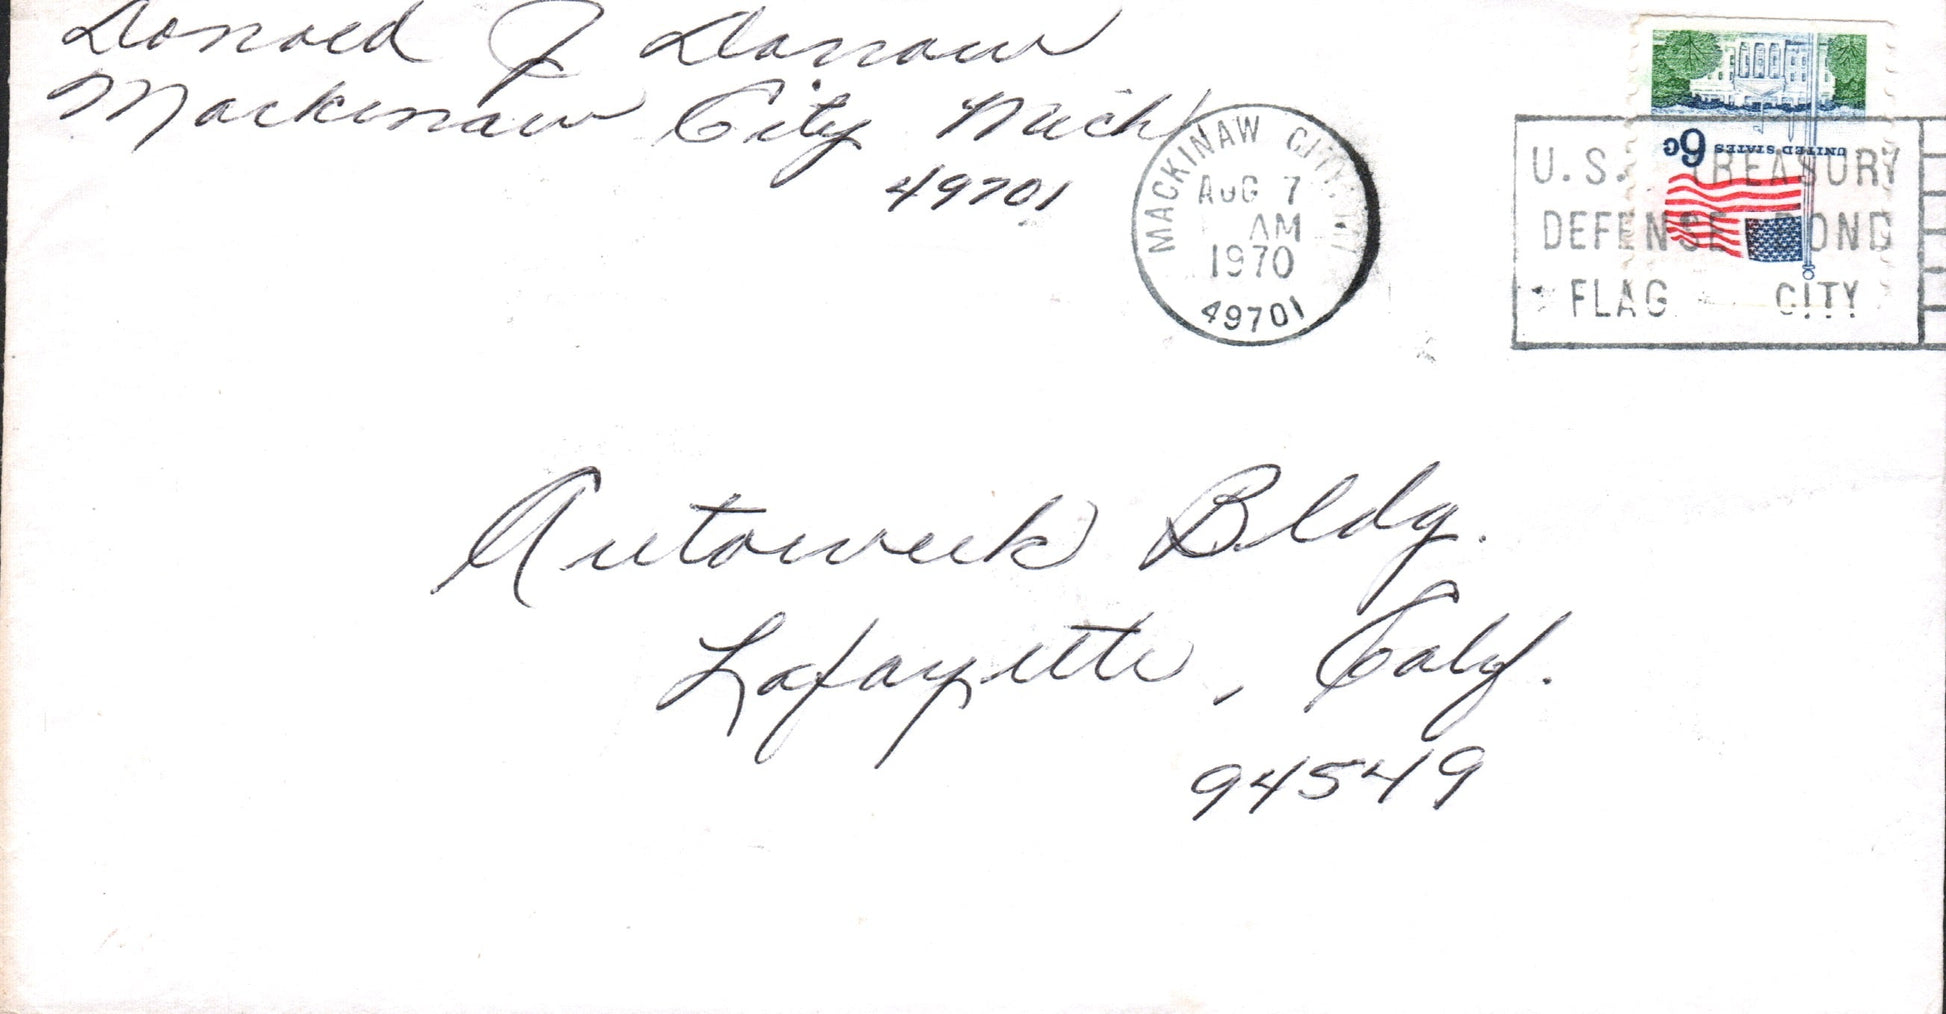 Donald J Donaw
Mackinaw City Mich
49701
MACKINAW CITY, MI
AUG 7
AM
1970
49701
6c UNITED STATES
U.S. TREASURY
DEFENSE BOND
FLAG CITY
Autoweek Bldg.
Lafayette, Calif.
94549